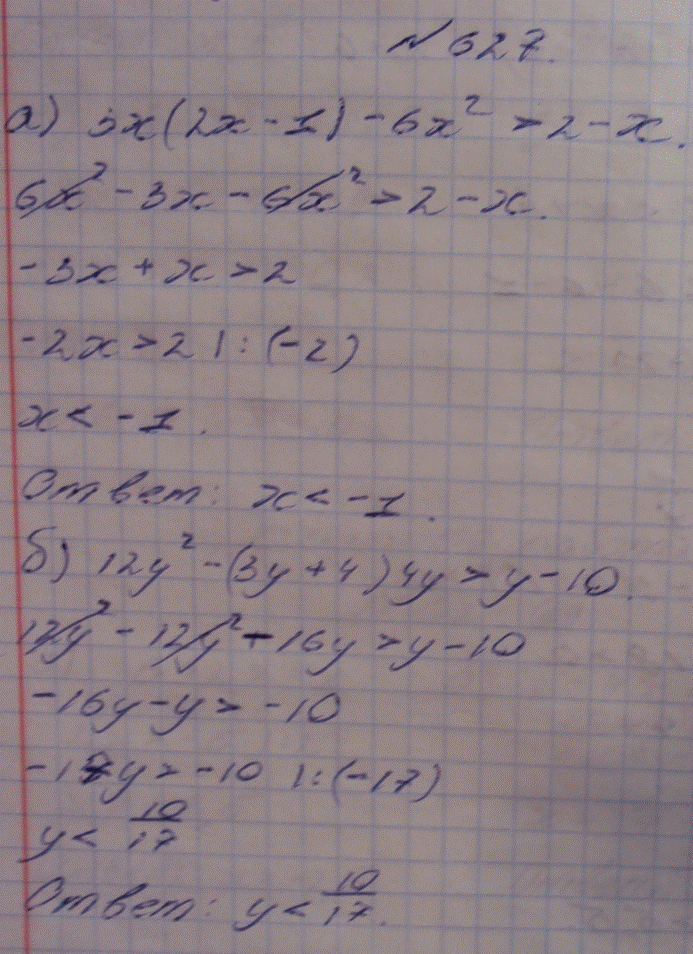 № 627.
а) 3x(2x - 1) - 6x² > 2 - x.
6x² - 3x - 6x² > 2 - x.
-3x + x > 2
-2x > 2 | : (-2)
x < -1.
Ответ: x < -1.
б) 12y² - (3y + 4)4y > y - 10.
12y² - 12y² - 16y > y - 10
-16y - y > -10
-17y > -10 | : (-17)
y < 10/17
Ответ: y < 10/17.